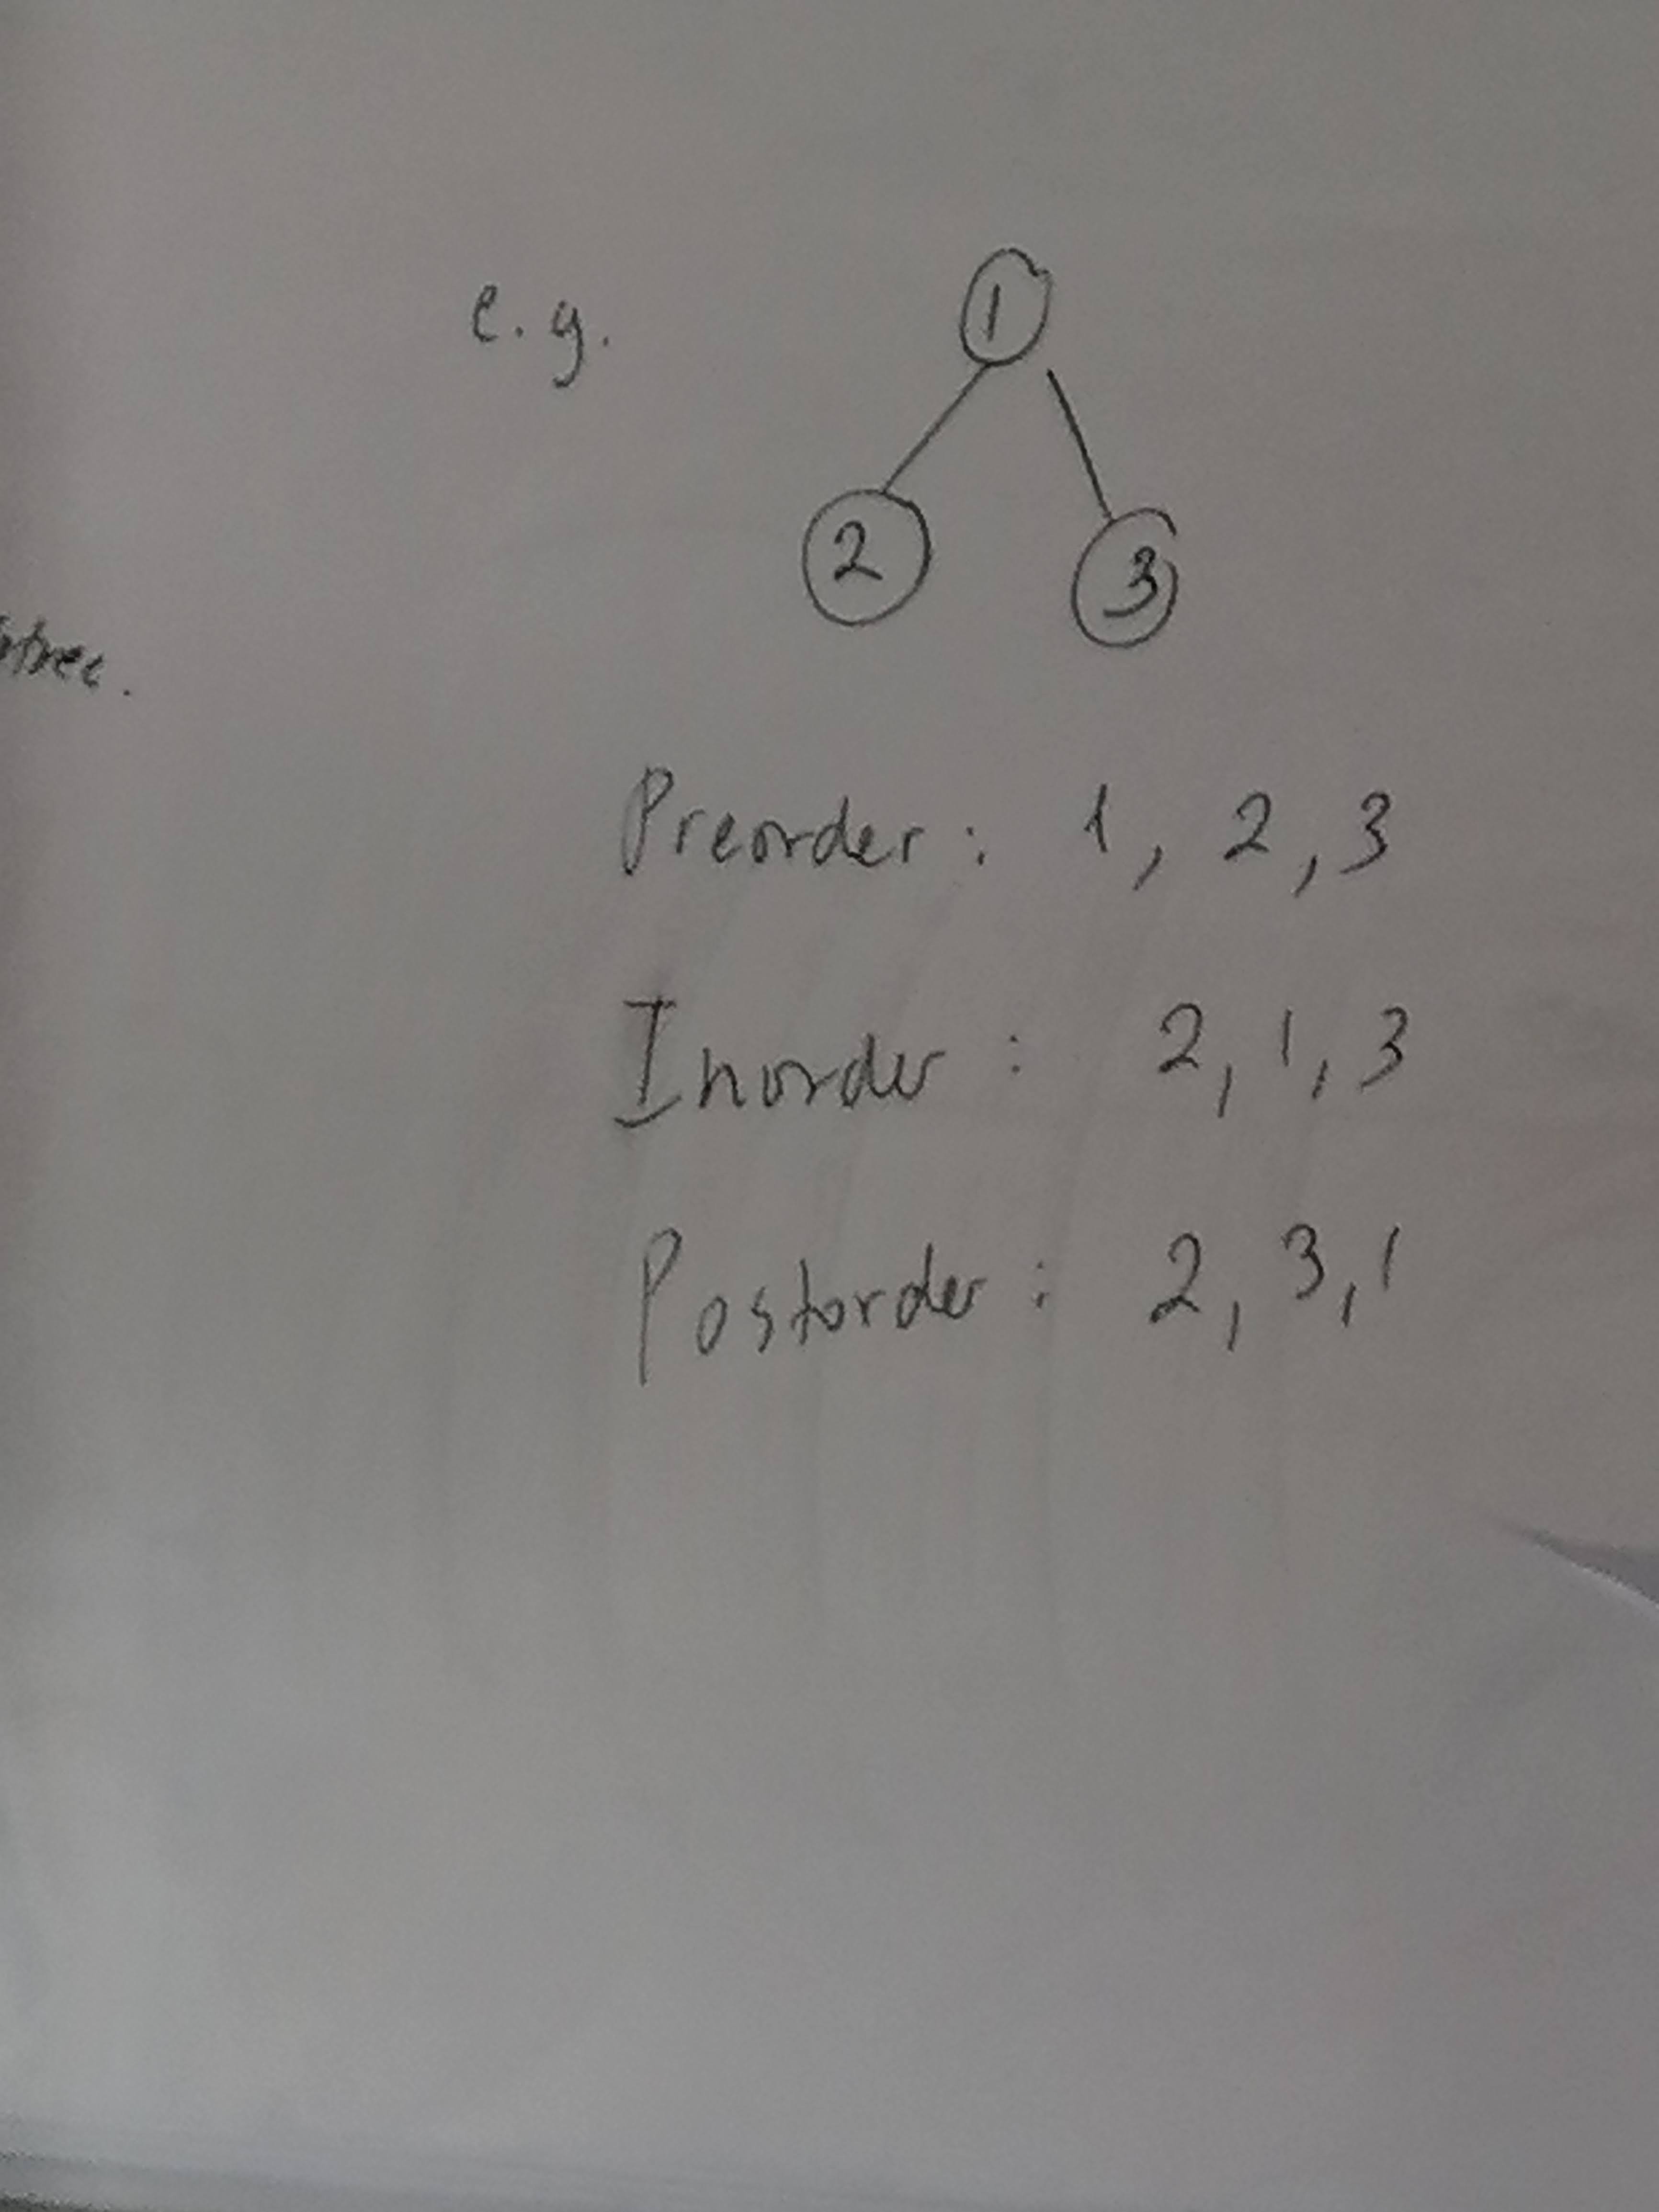 e.g.
1
2 3
Preorder: 1, 2, 3
Inorder: 2, 1, 3
Postorder: 2, 3, 1